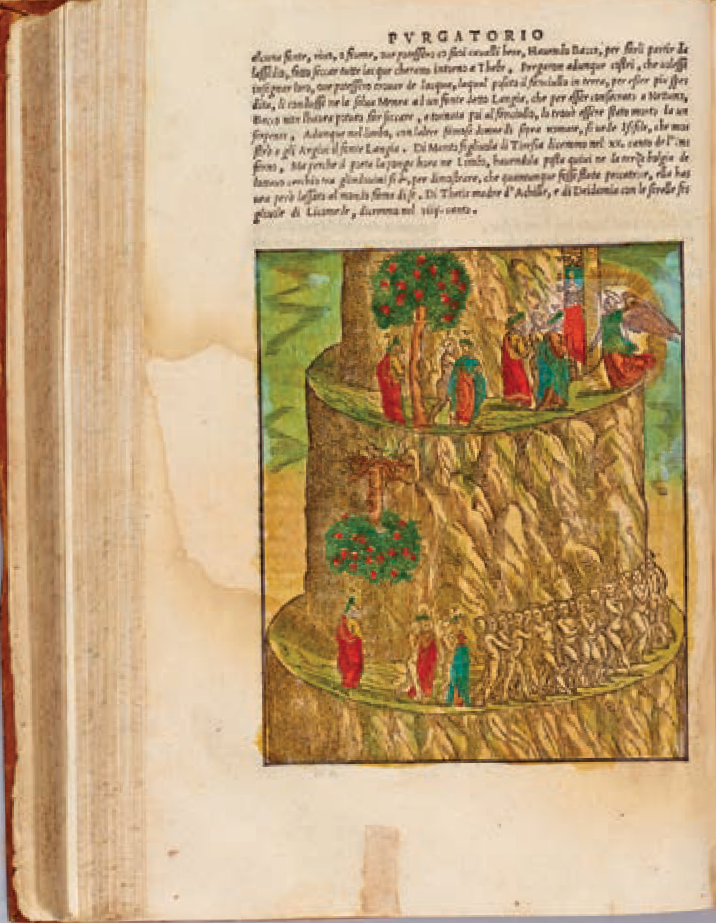 PVRGATORIO
alcuno fonte, riuo, o fiume, oue potessero essi caualli bere, Hauendo Bacco, per farli partir da
l'assedio, fatto seccar tutte lacque cherano intorno a Thebe, Pregaron adunque costei, che volesse
insegnar loro, oue potessero trouar de lacque, laqual posato il fanciullo in terra, per esser piu spe
dita, li condusse ne la selua Nemea ad un fonte detto Langia, che per esser consecrato a Nettuno,
Bacco non lhauea potuto far seccare, e tornata poi al fanciullo, lo trouò essere stato morto da un
serpente. Adunque nel limbo, con laltre famose donne di sopra nomate, si uede Isifile, che mo
strò a gli Argiui il fonte Langia. Di Manto figliuola di Tiresia dicemmo nel xx. canto de l'in
ferno, Ma perche il poeta la ponga hora ne Limbo, hauendola posta quiui ne la bolgia de
cerchio tra glindiuini per dimostrare, che quantunque fosse stata peccatrice, ella ha
uea però lassato al mondo fama di se. Di Thetis madre d'Achille, e di Deidamia con le sorelle fi
gliuole di Licomede, dicemmo nel canto.